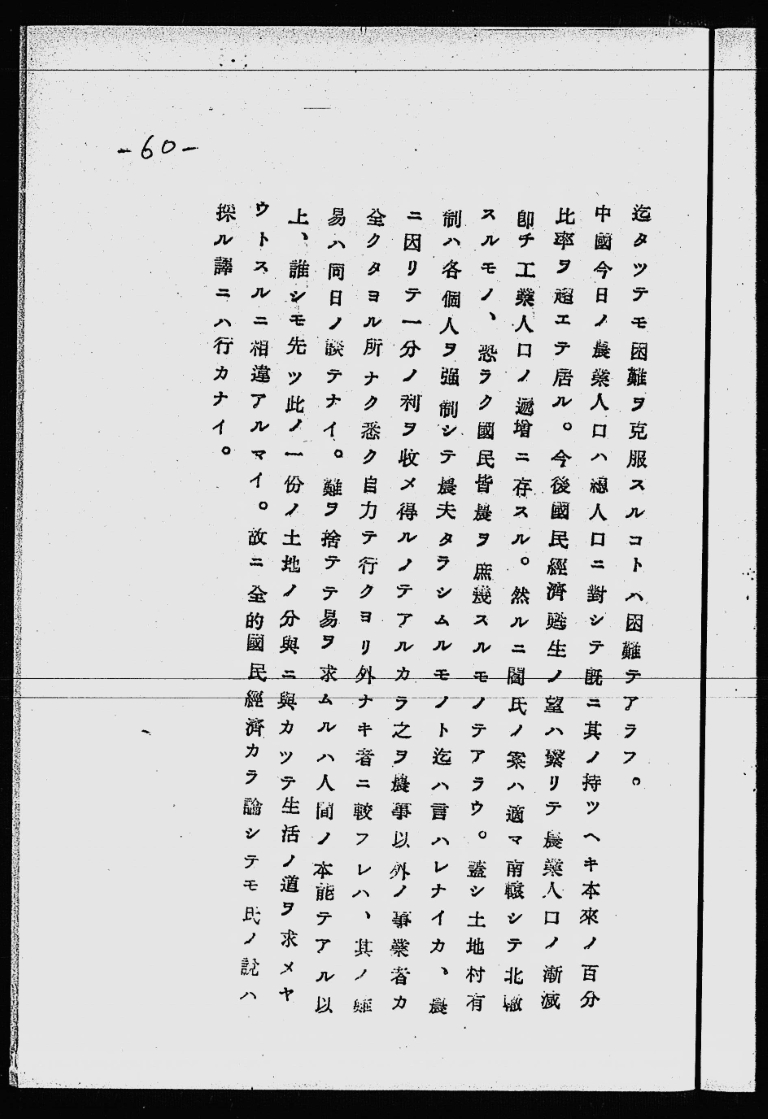 -60-
迄タツテモ困難ヲ克服スルコトハ困難テアラフ。
中國今日ノ農業人口ハ總人口ニ對シテ既ニ其ノ持ツヘキ本來ノ百分
比率ヲ超エテ居ル。今後國民經濟甦生ノ望ハ繋リテ農業人口ノ漸減
卽チ工業人口ノ遞增ニ存スル。然ルニ閻氏ノ案ハ適マ南轅シテ北轍
スルモノ、恐ラク國民皆農ヲ庶幾スルモノテアラウ。蓋シ土地村有
制ハ各個人ヲ强制シテ農夫タラシムルモノト迄ハ言ハレナイカ、農
ニ因リテ一分ノ利ヲ收メ得ルノテアルカラ之ヲ農事以外ノ事業者カ
全クタヨル所ナク悉ク自力テ行クヨリ外ナキ者ニ較フレハ、其ノ難
易ハ同日ノ談テナイ。難ヲ捨テテ易ヲ求ムルハ人間ノ本能テアル以
上、誰シモ先ツ此ノ一份ノ土地ノ分與ニ與カツテ生活ノ道ヲ求メヤ
ウトスルニ相違アルマイ。故ニ全的國民經濟カラ論シテモ氏ノ說ハ
採ル譯ニハ行カナイ。